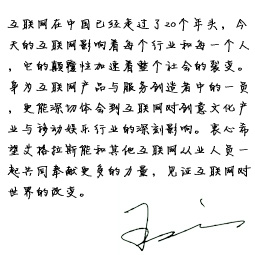 互联网在中国已经走过了20个年头，今
天的互联网影响着每个行业和每一个人
，它的颠覆性加速着整个社会的裂变。
身为互联网产品与服务创造者中的一员
，更能深切体会到互联网对创意文化产
业与移动娱乐行业的深刻影响。衷心希
望艾格拉斯能和其他互联网从业人员一
起共同奉献更多的力量，见证互联网对
世界的改变。